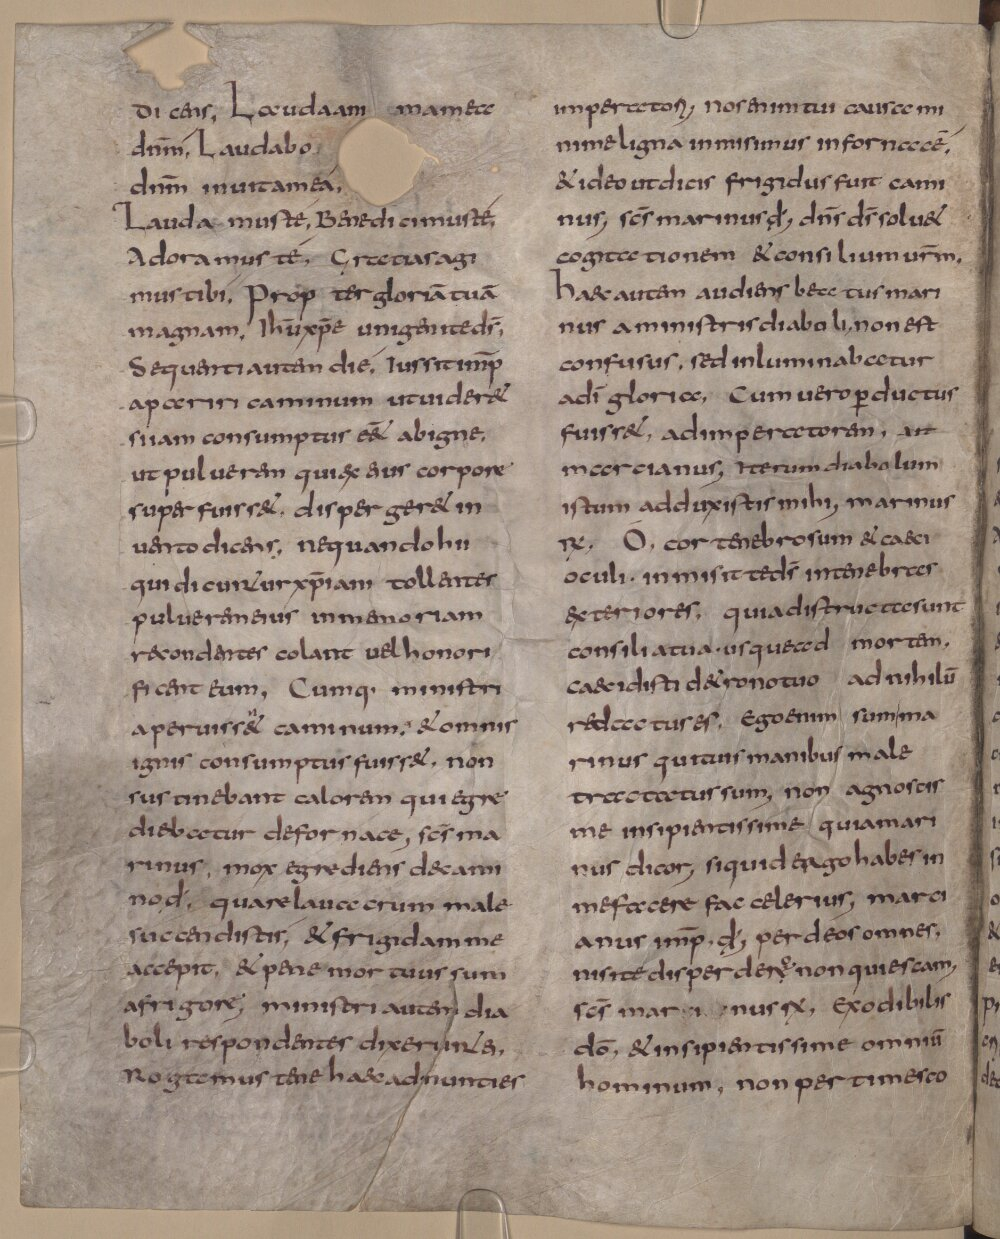 dicens, Lauda anima mea
dn̄m, Laudabo
dn̄m in uita mea,
Laudamus te, Benedicimus te,
Adoramus te, Gratias agi
mus tibi, Propter gloriā tuā
magnam, Ihū xp̄e unigenite ds̄,
Sequenti autem die, Iussit imp̄
aperiri caminum ut uider&
si iam consumptus eēt ab igne,
ut puluerem qui ex eius corpore
super fuiss&, disperger& in
uento dicens, nequando hii
qui dicun&ur xp̄iani tollentes
puluerem eius in memoriam
recondentes colant uel honori
ficent eum, Cumq· ministri
aperuiss&n caminum, & omnis
ignis consumptus fuiss&, non
sustinebant calorem qui egre
diebatur de fornace, scs̄ ma
rinus, mox egrediens de cami
no d̄, quare lauacrum male
succendistis, & frigidam me
accepit, & pene mortuus sum
a frigore, ministri autem dia
boli respondentes dixerun& ei,
Rogamus te ne haec adnunties
imperatori, nos enim tui causa ni
nime ligna inmisimus in fornacē,
& ideo ut dicis frigidus fuit cami
nus, scs̄ marinus d̄, dn̄s ds̄ solu&
cogitationem & consilium urm̄,
haec autem audiens beatus mari
nus a ministris diaboli, non est
confusus, sed inluminabatur
a dī gloria, Cum uero perductus
fuiss&, ad imperatorem, ait
marcianus, Iterum diabolum
istum adduxistis mihi, marinus
R̄, O, cor tenebrosum & caeci
oculi· inmisit te ds̄ in tenebras
exteriores, quia distructa sunt
consilia tua· usque ad mortem,
caecidisti de throno tuo ad nihilū
redactus es, Ego enim sum ma
rinus qui tuis manibus male
tractatus sum, non agnoscis
me insipientissime quia mari
nus dicor, si quid ergo habes in
me facere fac celerius, marci
anus imp̄· d̄, per deos omnes,
nisi te disperdere non quiescam,
scs̄ marinus R̄, Exodibilis
dō, & insipientissime omniū
hominum, non pertimesco